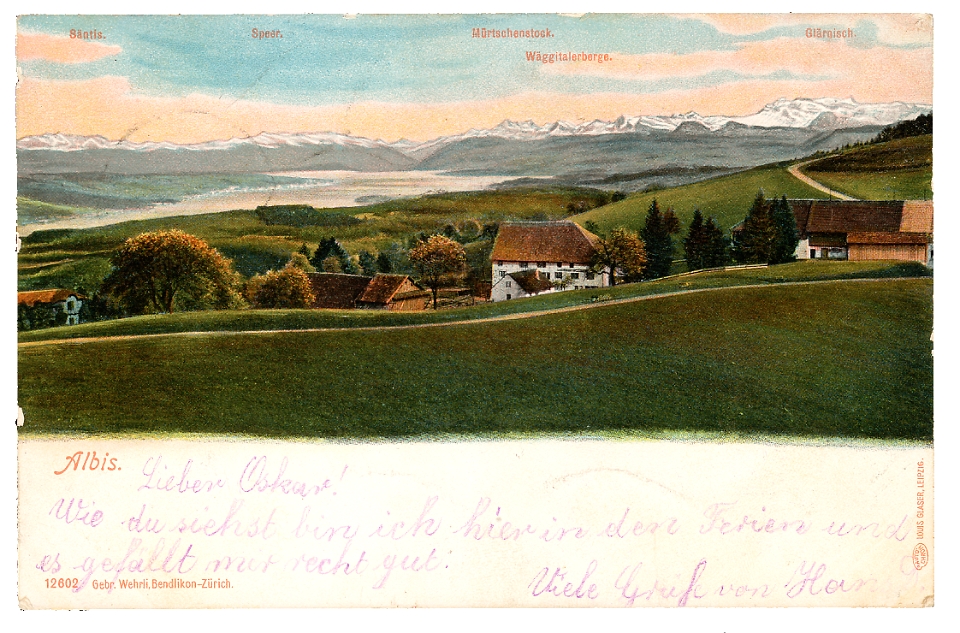 Säntis. Speer. Mürtschenstock. Glärnisch.
Wäggitalerberge.
Albis.
Lieber Oskar!
Wie du siehst bin ich hier in den Ferien und
es gefällt mir recht gut!
Viele Grüße von Hans
12602 Gebr. Wehrli, Bendlikon-Zürich.
LOUIS GLASER, LEIPZIG.